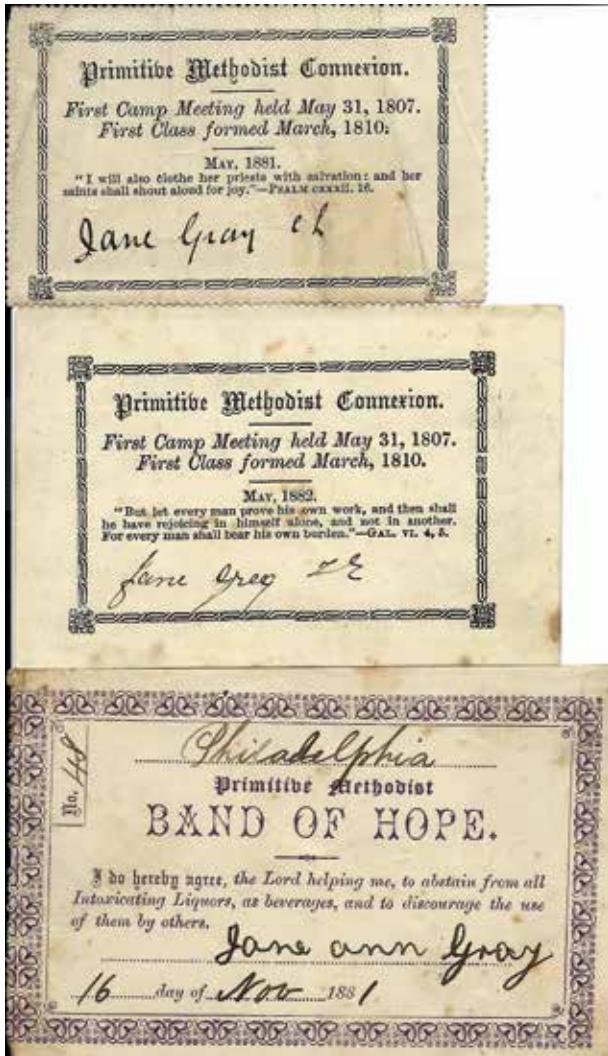 Primitive Methodist Connexion.
First Camp Meeting held May 31, 1807.
First Class formed March, 1810.
MAY, 1881.
"I will also clothe her priests with salvation: and her
saints shall shout aloud for joy."—PSALM CXXXII. 16.
Jane Gray
Primitive Methodist Connexion.
First Camp Meeting held May 31, 1807.
First Class formed March, 1810.
MAY, 1882.
"But let every man prove his own work, and then shall
he have rejoicing in himself alone, and not in another.
For every man shall bear his own burden."—GAL. VI. 4, 5.
Jane Grey
No. 48
Philadelphia
Primitive Methodist
BAND OF HOPE.
I do hereby agree, the Lord helping me, to abstain from all
Intoxicating Liquors, as beverages, and to discourage the use
of them by others.
Jane ann Gray
16 day of Nov 1881